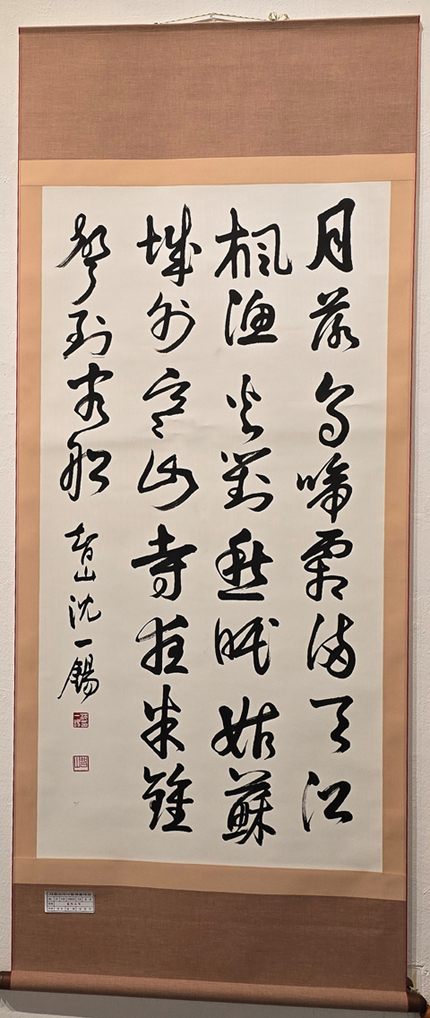 月落烏啼霜滿天江
楓漁火對愁眠姑蘇
城外寒山寺夜半鍾
聲到客船 智山 沈一錫